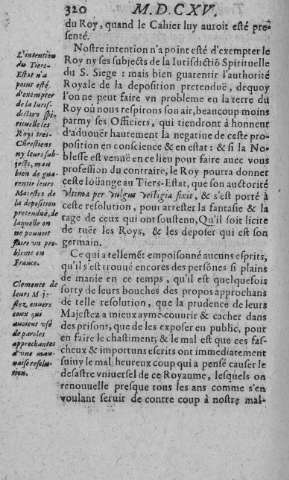 320 M. D. C XV.
du Roy, quand le Cahier luy auroit esté pre-
senté.
Nostre intention n'a point esté d'exempter le
Roy ny ses subjects de la Iurisdictiō Spirituelle
du S. Siege : mais bien guarentir l'authorité
Royale de la deposition pretenduë, dequoy
l'on ne peut faire vn probleme en la terre du
Roy où nous respirons son air, beaucoup moins
parmy ses Officiers, qui tiendront à honneur
d'aduoüer hautement la negatiue de ceste pro-
position en conscience & en estat : & si la No-
blesse est venuë en ce lieu pour faire auec vous
profession du contraire, le Roy pourra donner
ceste loüange au Tiers-Estat, que son auctorité
vulgus vestigia fixit, & s'est porté à
ceste resolution, pour arrester la fantasie & la
rage de ceux qui ont soustenu, Qu'il soit licite
de tuër les Roys, & les deposer qui est son
germain.
Ce qui a tellemēt empoisonné aucuns esprits,
qu'il s'est trouué encores des persōnes si plains
de manie en ce temps, qu'il est quelquesfois
sorty de leurs bouches des propos approchans
de telle resolution, que la prudence de leurs
Majestez a mieux aymé couurir & cacher dans
des prisons, que de les exposer en public, pour
en faire le chastiment; & le mal est que ces fas-
cheux & importuns escrits ont immediatement
suiuy le mal, heureux coup qui a pensé causer le
desastre vniuersel de ce Royaume, lesquels on
renouuelle presque tous les ans comme s'en
voulant seruir de contre coup à nostre mal-
L'intention
du Tiers-
Estat n'a
point esté
d'exempter
de la Iuris-
dictiō Spi-
rituelle les
Roys tres-
Chrestiens
ny leurs sub-
jects, mais
bien de gua-
rentir leurs
Majestez de
la deposition
pretenduë, de
laquelle on
ne pouuoit
faire vn pro-
bleme en
France.
Clemente de
leurs Ma-
jestez, enuers
ceux qui
auoient vsé
de paroles
approchantes
d'une mau-
uaise resolu-
tion.